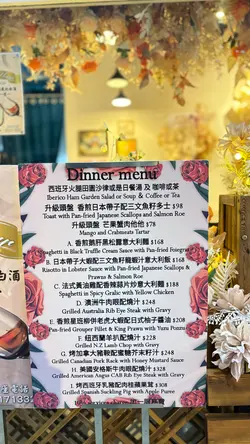 Dinner menu
西班牙火腿田園沙律或是日餐湯 及 咖啡或茶
Iberico Ham Garden Salad or Soup & Coffee or Tea
升級頭盤 香煎日本帶子配三文魚籽多士 $98
Toast with Pan-fried Japanese Scallops and Salmon Roe
升級頭盤 芒果蟹肉他他 $78
Mango and Crabmeats Tartar
A. 香煎鵝肝黑松露意大利麵 $168
Spaghetti in Black Truffle Cream Sauce with Pan-fried Foiegras
B. 日本帶子大蝦配三文魚籽龍蝦汁意大利飯 $168
Risotto in Lobster Sauce with Pan-fried Japanese Scallops & Prawns & Salmon Roe
C. 法式黃油雞配香辣蒜片炒意大利麵 $188
Spaghetti in Spicy Gralic with Yellow Chicken
D. 澳洲牛肉眼配燒汁 $248
Grilled Australia Rib Eye Steak with Gravy
E. 香煎星斑柳伴老虎大蝦配日式柚子醬 $208
Pan-fried Grouper Fillet & King Prawn with Yuzu Ponzu
F. 紐西蘭羊扒配燒汁 $228
Grilled N.Z Lamb Chop with Gravy
G. 烤加拿大豬鞍配蜜糖芥末籽汁 $248
Grilled Canadian Pork Rack with Honey Mustard Sauce
H. 美國安格斯牛肉眼配燒汁 $328
Grilled American Angus CAB Rib Eye Steak with Gravy
I. 烤西班牙乳豬配肉桂蘋果茸 $308
Grilled Spanish Suckling Pig with Apple Puree
酒